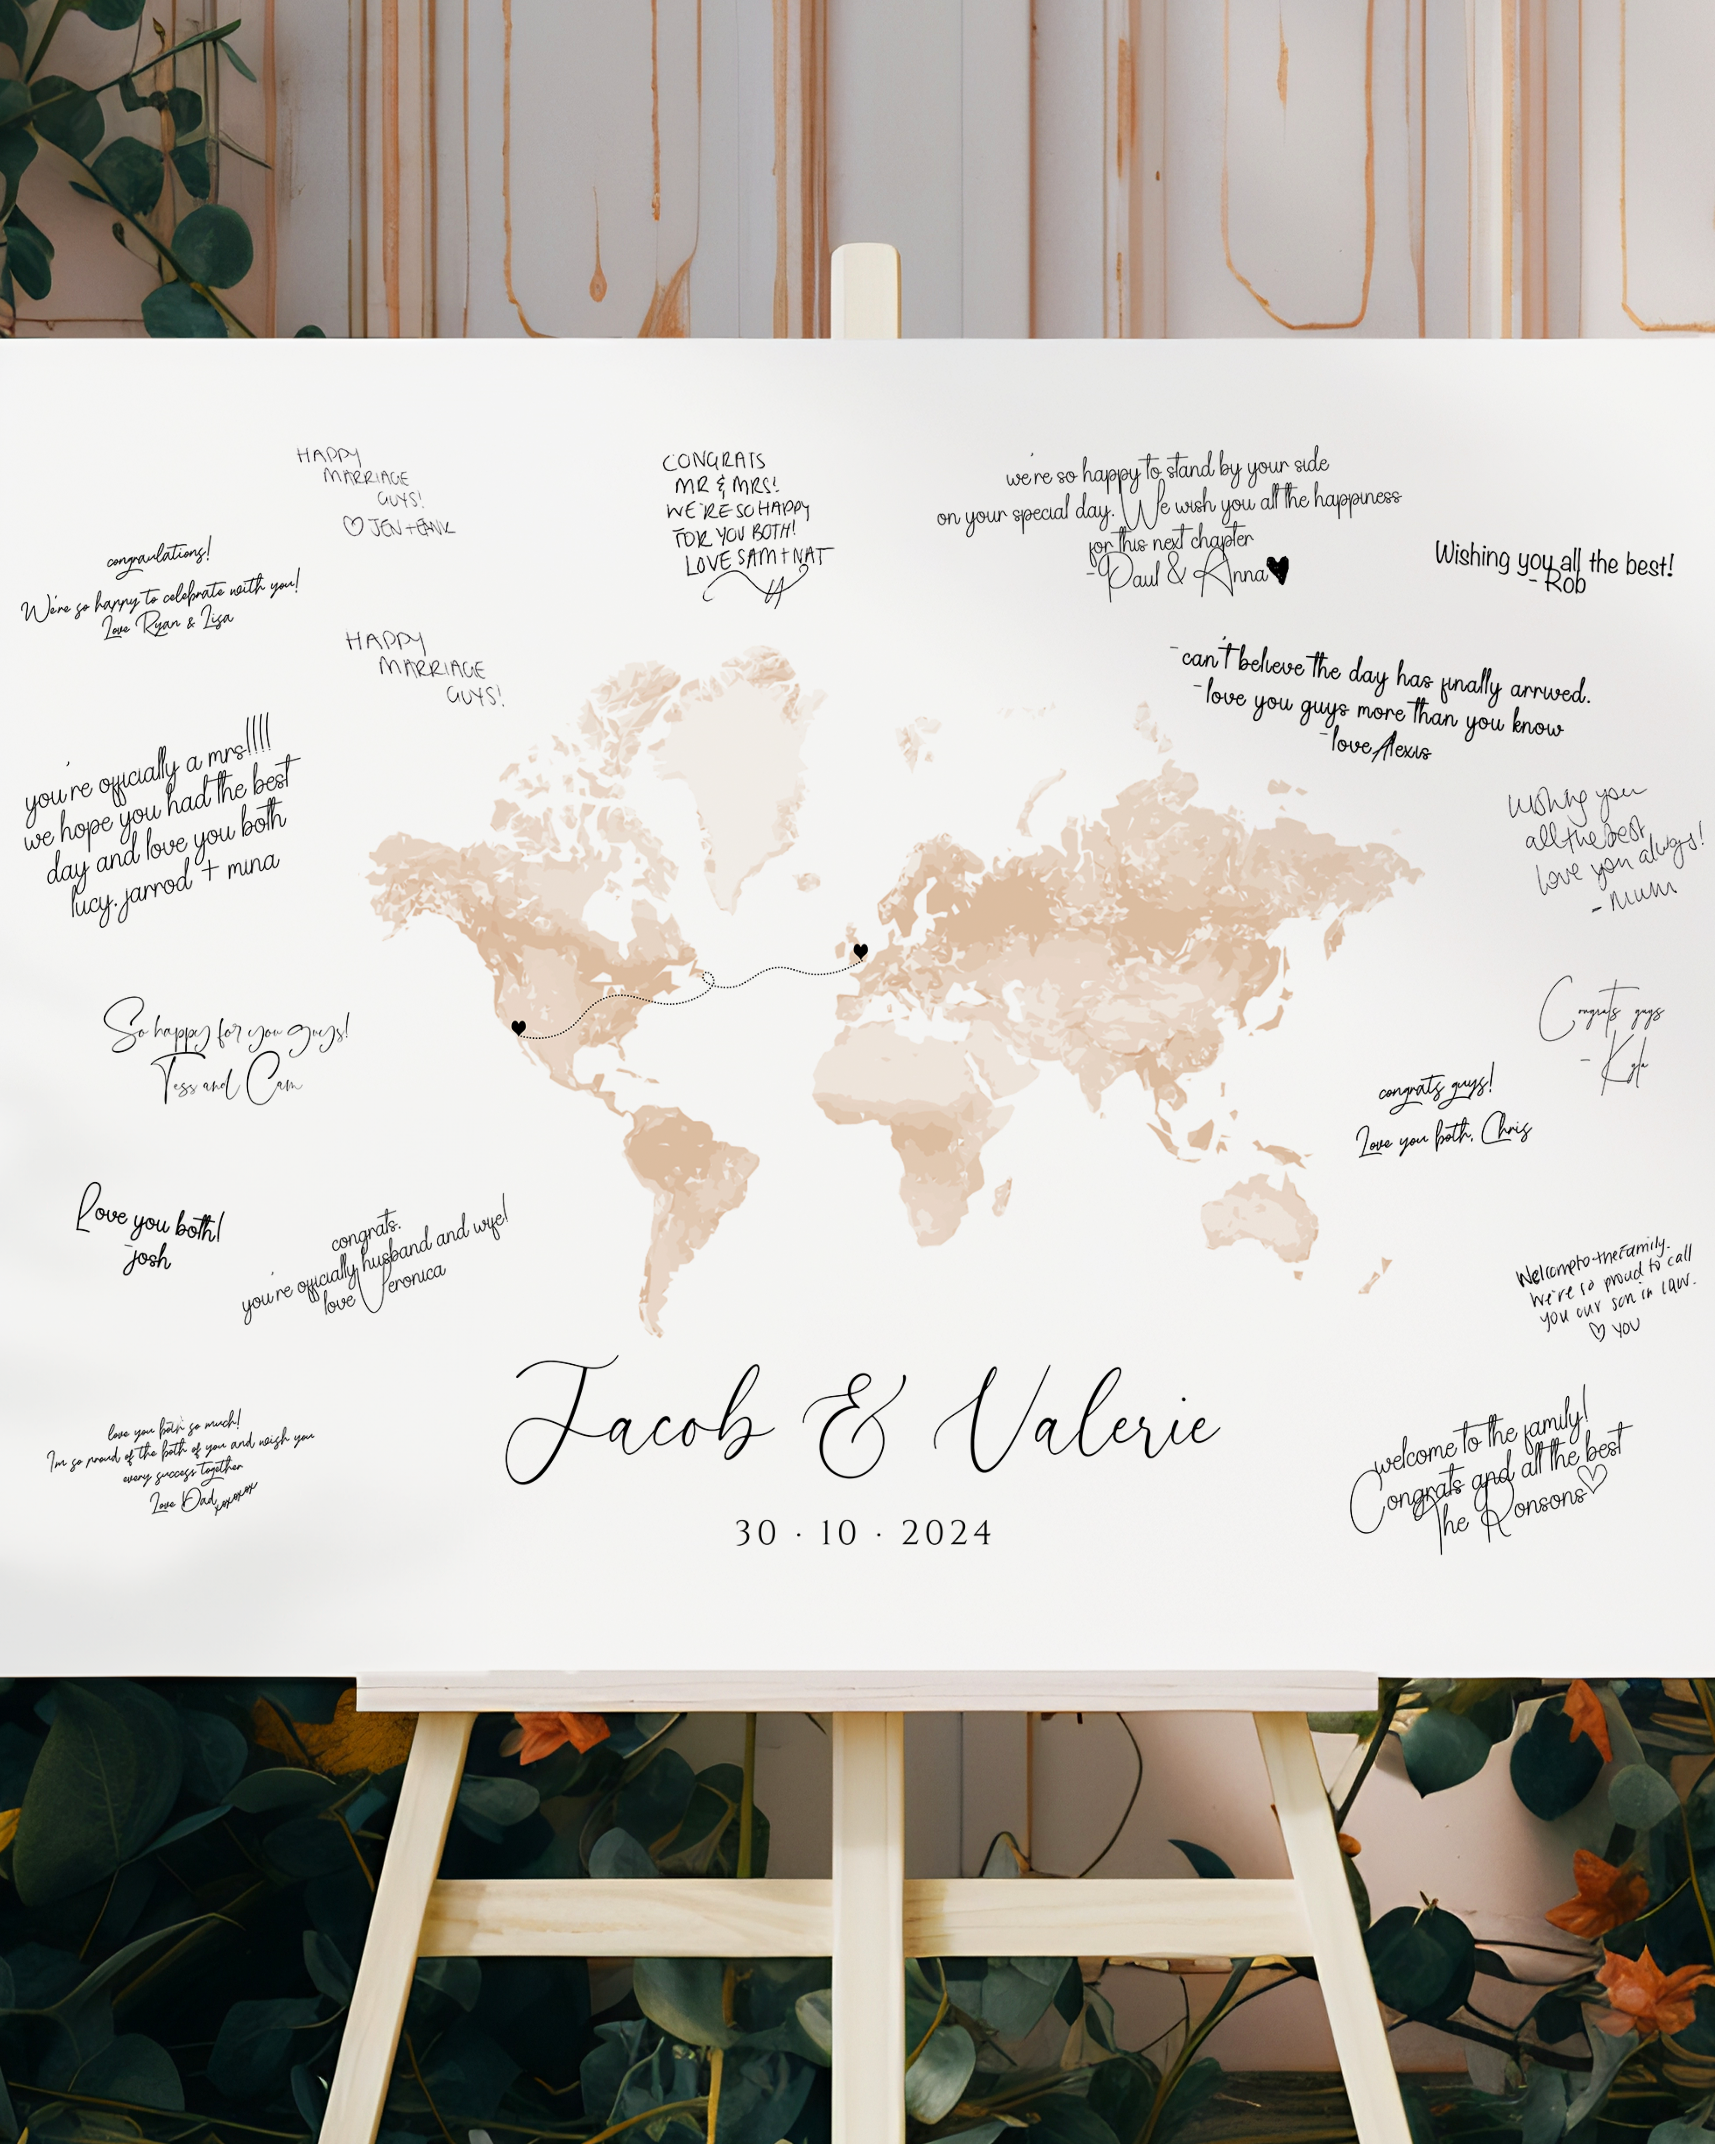 HAPPY
MARRIAGE
GUYS!
♡ JEN +
CONGRATS
MR & MRS!
WE'RE SO HAPPY
FOR YOU BOTH!
LOVE SAM + NAT
we're so happy to stand by your side
on your special day. We wish you all the happiness
for this next chapter
- Paul & Anna♥
Wishing you all the best!
- Rob
congraulations!
We're so happy to celebrate with you!
Love Ryan & Lisa
HAPPY
MARRIAGE
GUYS!
-can't believe the day has finally arrived.
-love you guys more than you know
-love Alexis
you're officially a mrs!!!!
we hope you had the best
day and love you both
lucy, jarrod + mina
Wishing you
all the best
love you always!
- mum
So happy for you guys!
Tess and Cam
Congrats guys
- Kyla
congrats guys!
Love you both, Chris
Love you both!
-josh
congrats.
you're officially husband and wife!
love Veronica
Welcome to the family.
We're so proud to call
you our son in law.
♡ YOU
love you both so much!
I'm so proud of the both of you and wish you
every success together
Love Dad xoxoxox
welcome to the family!
Congrats and all the best
The Ronsons♡
Jacob & Valerie
30 · 10 · 2024